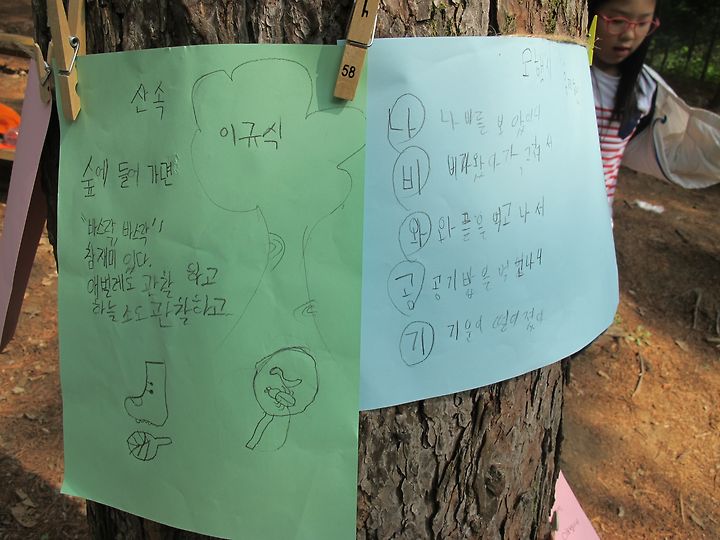 산속
이규식
숲에 들어 가면
"바스락, 바스락"
참재미 있다.
애벌레도 관찰 하고
하늘소도 관찰하고
58
나 나비를 보았더니
비 비가왔다가, 그쳐서
와 와플을 먹고 나서
공 공기밥을 먹
기 기운이 떨어졌다